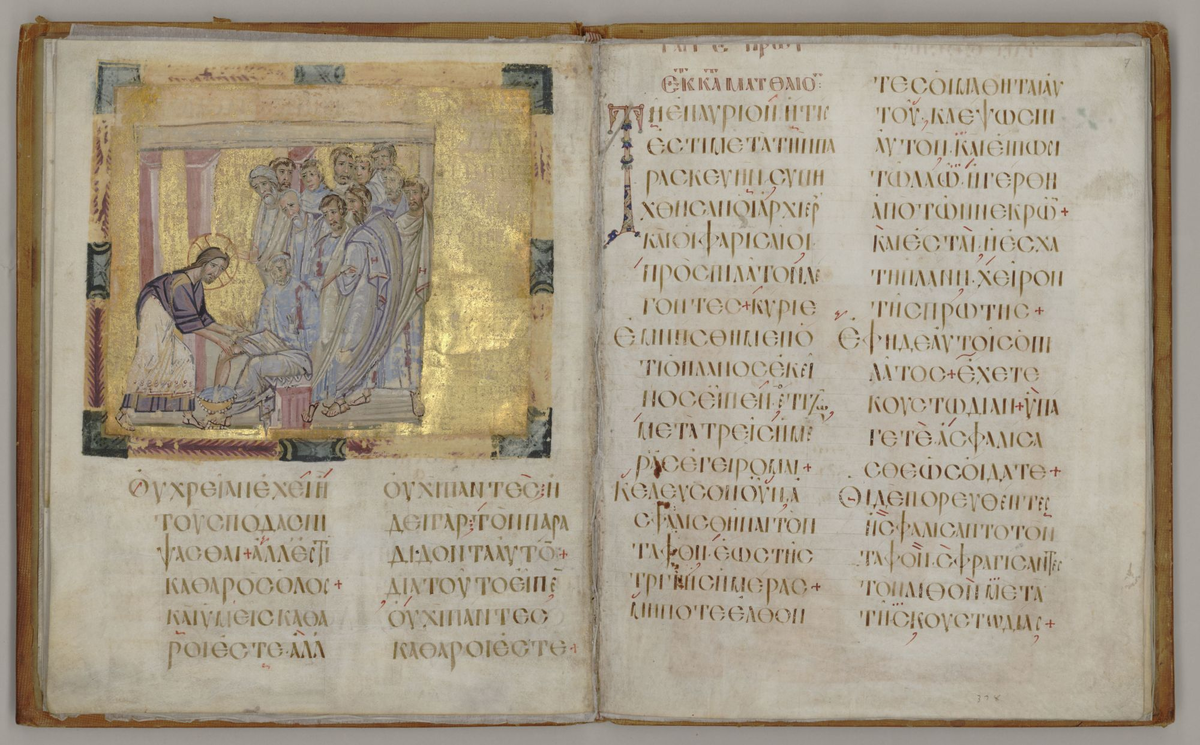 ΟΥΧΡΕΙΑΝΕΧΕΙΗ
ΤΟΥϹΠΟΔΑϹΝΙ
ΨΑϹΘΑΙ+ΑΛΛΕϹΤΙ
ΚΑΘΑΡΟϹΟΛΟϹ+
ΚΑΙΥΜΕΙϹΚΑΘΑ
ΡΟΙΕϹΤΕ·ΑΛΛ
ΟΥΧΙΠΑΝΤΕϹ·Η
ΔΕΙΓΑΡ·ΤΟΝΠΑΡΑ
ΔΙΔΟΝΤΑΑΥΤΟ̅+
ΔΙΑΤΟΥΤΟΕΙΠΕ
ΟΥΧΙΠΑΝΤΕϹ
ΚΑΘΑΡΟΙΕϹΤΕ+
ΕΚΚΑΜΑΤΘΑΙΟ
ΤΗΕΠΑΥΡΙΟΝΗΤΙ
ΕϹΤΙΜΕΤΑΤΗΝΠΑ
ΡΑϹΚΕΥΗΝ·ϹΥΝΗ
ΧΘΗϹΑΝΟΙΑΡΧΙΕΡ
ΚΑΙΟΙΦΑΡΙϹΑΙΟΙ
ΠΡΟϹΠΙΛΑΤΟΝΛΕ
ΓΟΝΤΕϹ+ΚΥΡΙΕ
ΕΜΝΗϹΘΗΜΕΝΟ
ΤΙΟΠΛΑΝΟϹΕΚΕΙ
ΝΟϹΕΙΠΕΝ·ΕΤΙΖΩ
ΜΕΤΑΤΡΕΙϹΗΜΕ
ΡΑϹΕΓΕΙΡΟΜΑΙ+
ΚΕΛΕΥϹΟΝΟΥΝΑ
ϹΦΑΛΙϹΘΗΝΑΙΤΟΝ
ΤΑΦΟΝ·ΕΩϹΤΗϹ
ΤΡΙΤΗϹΗΜΕΡΑϹ+
ΜΗΠΟΤΕΕΛΘΟΝ
ΤΕϹΟΙΜΑΘΗΤΑΙΑΥ
ΤΟΥ·ΚΛΕΨΩϹΙΝ
ΑΥΤΟΝ·ΚΑΙΕΙΠΩϹΙ
ΤΩΛΑΩ·ΗΓΕΡΘΗ
ΑΠΟΤΩΝΝΕΚΡΩ̅+
ΚΑΙΕϹΤΑΙΗΕϹΧΑ
ΤΗΠΛΑΝΗ·ΧΕΙΡΟΝ
ΤΗϹΠΡΩΤΗϹ+
ΕΦΗΔΕΑΥΤΟΙϹΟΠΙ
ΛΑΤΟϹ+ΕΧΕΤΕ
ΚΟΥϹΤΩΔΙΑΝ+ΥΠΑ
ΓΕΤΕΑϹΦΑΛΙϹΑ
ϹΘΕΩϹΟΙΔΑΤΕ+
ΟΙΔΕΠΟΡΕΥΘΕΝΤΕϹ
ΗϹΦΑΛΙϹΑΝΤΟΤΟΝ
ΤΑΦΟΝ·ϹΦΡΑΓΙϹΑΝΤΕϹ
ΤΟΝΛΙΘΟΝΜΕΤΑ
ΤΗϹΚΟΥϹΤΩΔΙΑϹ+